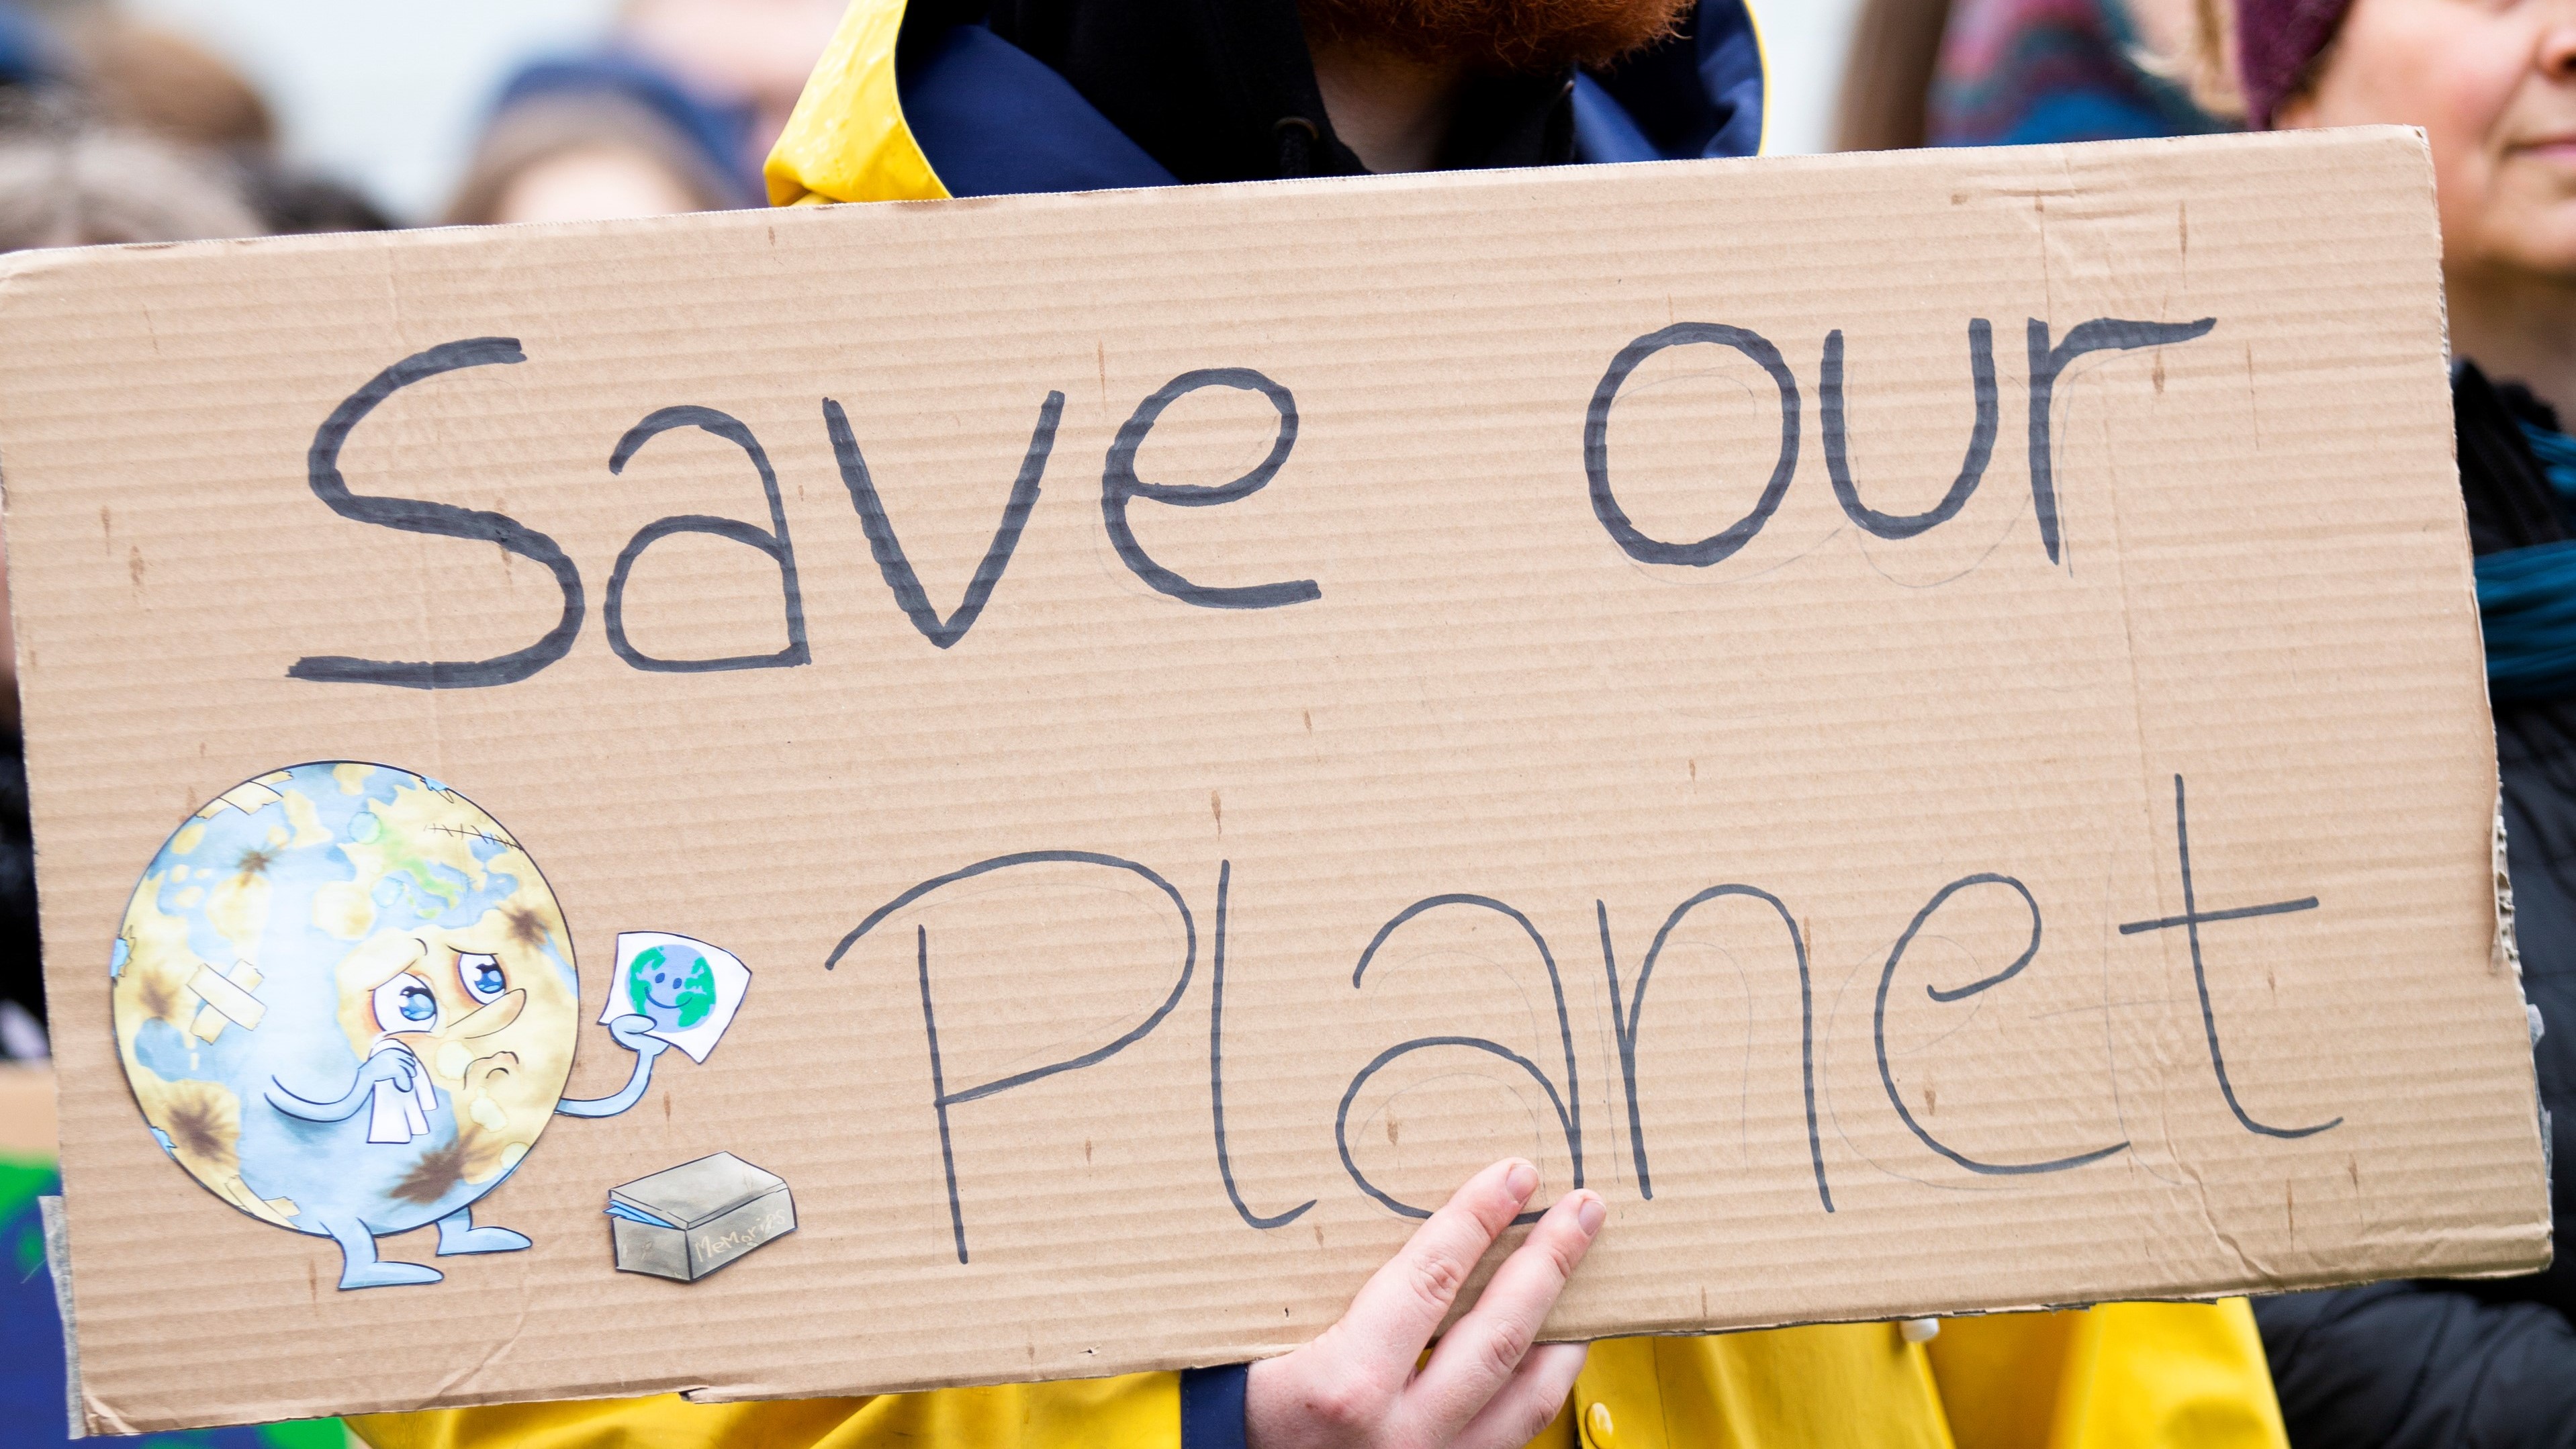 Save our
Planet
MeMories